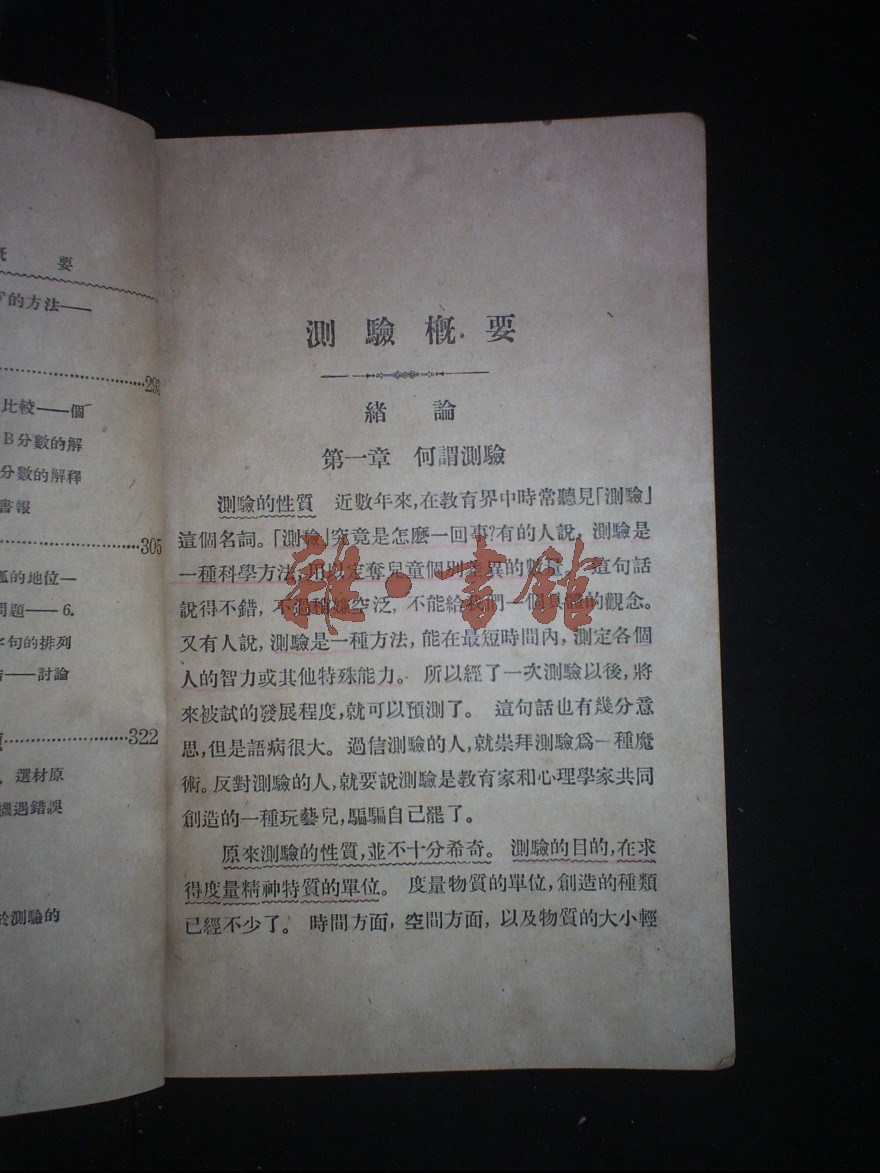 要
的方法——
293
比較——個
B分數的解
分數的解釋
書報
305
的地位—
問題——6.
字句的排列
——討論
322
選材原
機遇錯誤
於測驗的
測驗概要
緒論
第一章 何謂測驗
測驗的性質 近數年來,在教育界中時常聽見「測驗」
這個名詞。「測驗」究竟是怎麽一回事?有的人說,測驗是
一種科學方法,用以定奪兒童個別差異的數量。 這句話
說得不錯,不過稍嫌空泛,不能給我們一個具體的觀念。
又有人說,測驗是一種方法,能在最短時間內,測定各個
人的智力或其他特殊能力。 所以經了一次測驗以後,將
來被試的發展程度,就可以預測了。 這句話也有幾分意
思,但是語病很大。 過信測驗的人,就崇拜測驗爲一種魔
術。反對測驗的人,就要說測驗是教育家和心理學家共同
創造的一種玩藝兒,騙騙自己罷了。
原來測驗的性質,並不十分希奇。 測驗的目的,在求
得度量精神特質的單位。 度量物質的單位,創造的種類
已經不少了。 時間方面,空間方面,以及物質的大小輕
雜·書館